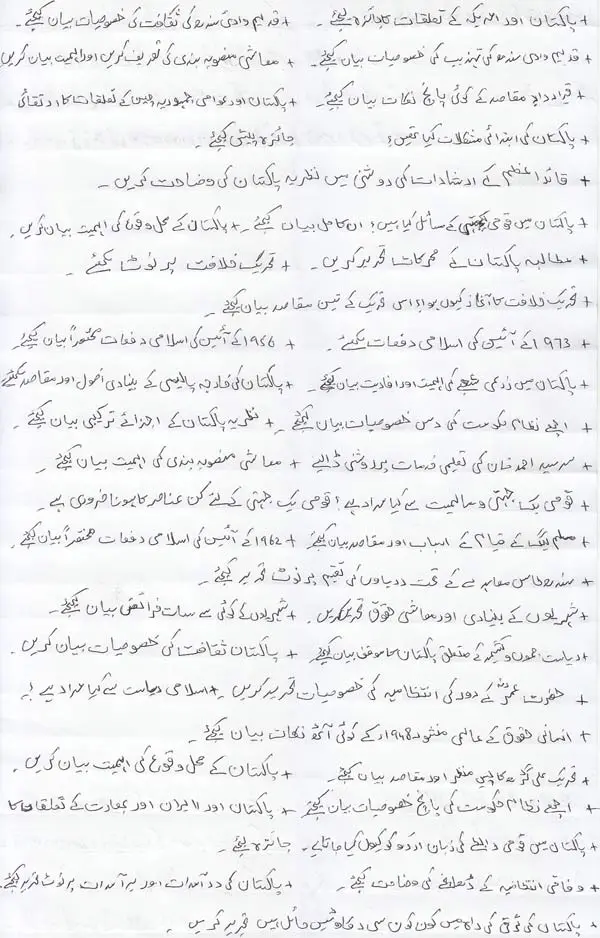 + پاکستان اور امریکہ کے تعلقات کا جائزہ لیجئے۔ + قدیم وادئ سندھ کی ثقافت کی خصوصیات بیان کیجئے۔
+ قدیم وادی سندھ کی تہذیب کی خصوصیات بیان کیجئے۔ + معاشی منصوبہ بندی کی تعریف کریں اور اہمیت بیان کریں
+ قرارداد مقاصد کے کوئی پانچ نکات بیان کیجئے۔ + پاکستان اور عوامی جمہوریہ چین کے تعلقات کا ارتقائی
+ پاکستان کی ابتدائی مشکلات کیا تھیں؟ جائزہ پیش کیجئے۔
+ قائداعظم کے ارشادات کی روشنی میں نظریہ پاکستان کی وضاحت کریں۔
+ پاکستان میں قومی کے مسائل کیا ہیں؟ ان کا حل بیان کیجئے۔ + پاکستان کے محل وقوع کی اہمیت بیان کریں۔
+ مطالبہ پاکستان کے محرکات تحریر کریں۔ + تحریک خلافت پر نوٹ لکھئے۔
+ تحریک خلافت کا آغاز کیوں ہوا؟ اس تحریک کے تین مقاصد بیان کیجئے۔
+ 1973 کے آئین کی اسلامی دفعات لکھئے۔ + 1956 کے آئین کی اسلامی دفعات مختصراً بیان کیجئے۔
+ پاکستان میں زرعی شعبے کی اہمیت اور افادیت بیان کیجئے۔ + پاکستان کی خارجہ پالیسی کے بنیادی اصول اور مقاصد لکھئے
+ اچھے نظام حکومت کی دس خصوصیات بیان کیجئے۔ + نظریہ پاکستان کے اجزائے ترکیبی بیان کیجئے۔
+ سرسید احمد خان کی تعلیمی خدمات پر روشنی ڈالیے + معاشی منصوبہ بندی کی اہمیت بیان کیجئے۔
+ قومی یک جہتی و سالمیت سے کیا مراد ہے؟ قومی یک جہتی کے لئے کن عناصر کا ہونا ضروری ہے۔
+ مسلم لیگ کے قیام کے اسباب اور مقاصد بیان کیجئے + 1962 کے آئین کی اسلامی دفعات مختصراً بیان کیجئے۔
+ سندھ طاس معاہدے کے تحت دریاوں کی تقسیم پر نوٹ تحریر کیجئے۔
+ شہریوں کے بنیادی اور معاشی حقوق تحریر کریں۔ + شہریوں کے کوئی سے سات فرائض بیان کیجئے۔
+ ریاست جموں و کشمیر کے متعلق پاکستان کا موقف بیان کیجئے + پاکستان ثقافت کی خصوصیات بیان کریں۔
+ حضرت عمرؓ کے دور کی انتظامیہ کی خصوصیات تحریر کریں۔ + اسلامی ریاست سے کیا مراد ہے؟
+ انسانی حقوق کے عالمی منشور 1948ء کے کوئی آٹھ نکات بیان کیجئے۔
+ تحریک علی گڑھ کا پس منظر اور مقاصد بیان کیجئے۔ + پاکستان کے محل وقوع کی اہمیت بیان کریں۔
+ اچھے نظام حکومت کی پانچ خصوصیات بیان کیجئے + پاکستان اور ایران اور بھارت کے تعلقات کا
+ پاکستان میں قومی رابطے کی زبان اردو کو کیوں کہا جاتا ہے۔ جائزہ لیجئے۔
+ وفاقی انتظامیہ کے ڈھانچے کی وضاحت کیجئے۔ + پاکستان کی درآمدات اور برآمدات پر نوٹ تحریر کیجئے
+ پاکستان کی ترقی کی راہ میں کون کون سی رکاوٹیں حائل ہیں تحریر کریں۔